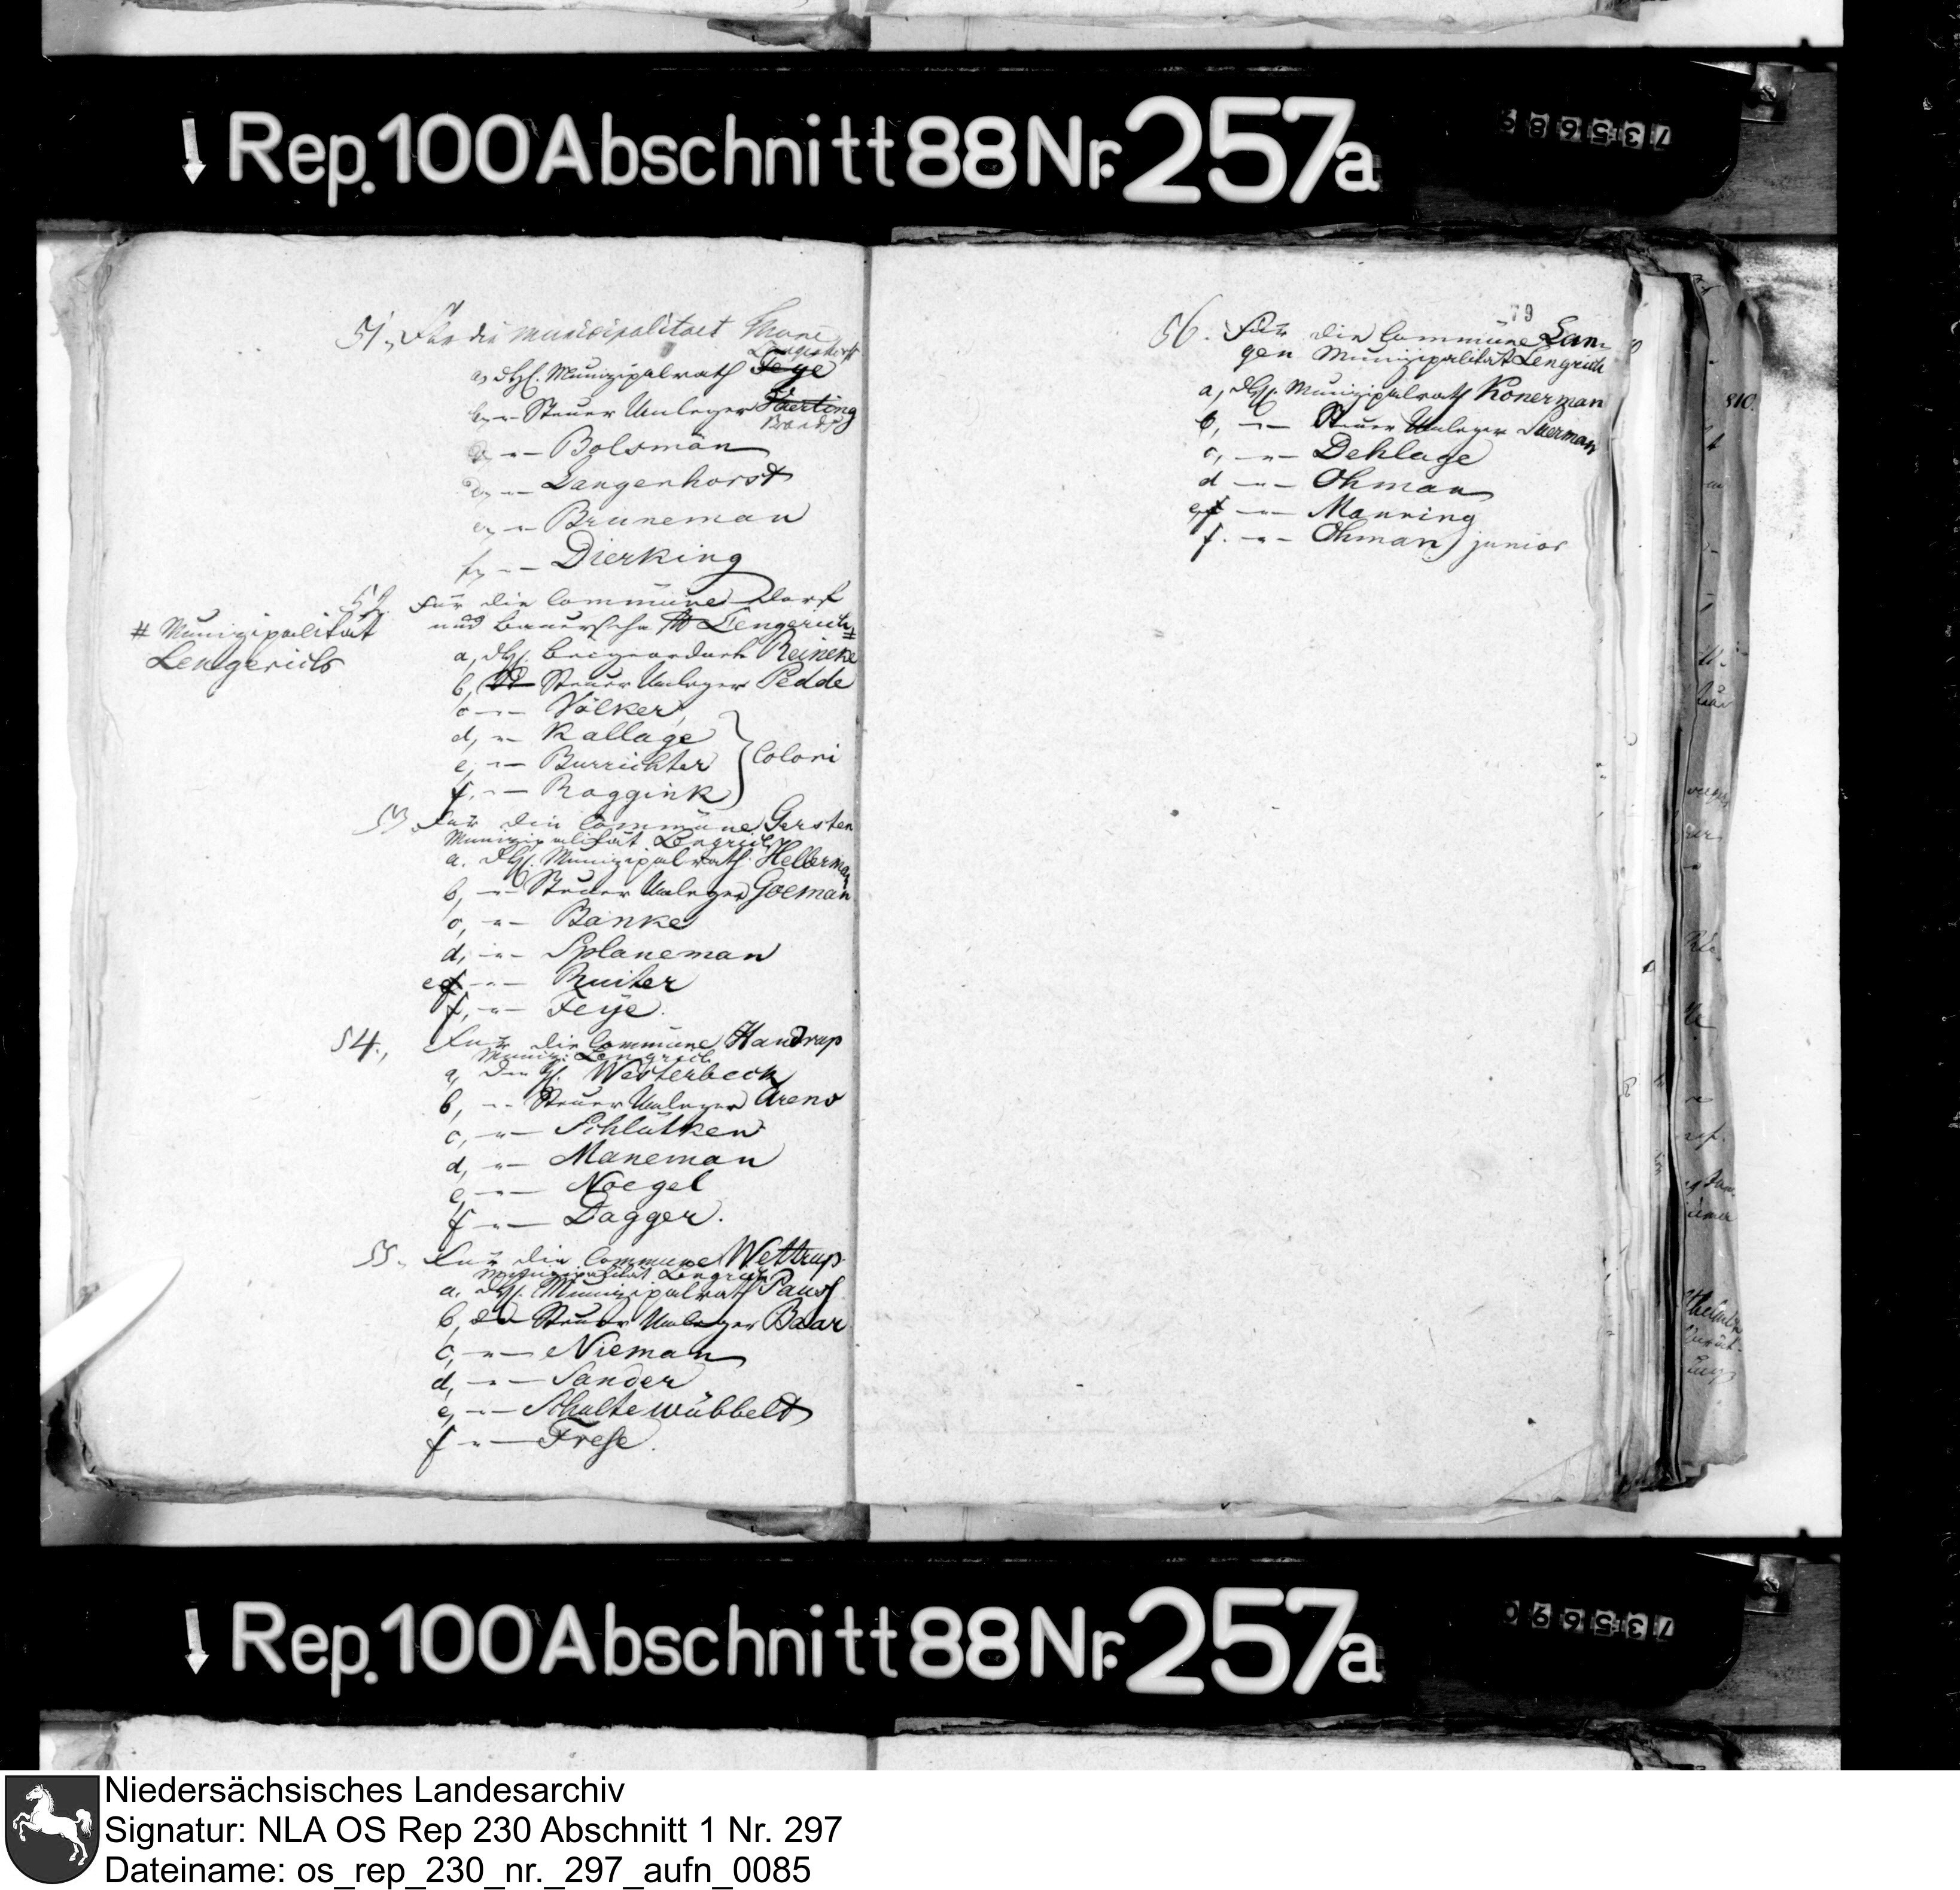 Rep. 100 Abschnitt 88 Nr. 257a
735689
51. Für die municipalitaet Thune
Langenhorst
a, dH. Munizipalrath Feye
b, -"- Steuer Umleger Haerting
Brands
c, -"- Bolsman
d, -"- Langenhorst
e, -"- Bruneman
f, -"- Dierking
52. Für die Commune Dorf
und Bauerscha Lengerich #
# Munizipalität
Lengerich
a, dH. beigeordnete Reineke
b, Steuer Umleger Pedde
c -"- Völker
d, -"- Kallage
e, -"- Burrichter
f. -"- Roggink
} Coloni
53 Für die Commune Gersten
Munizipalität Lengrich
a. dH. Munizipalrath Hellerman
b, -"- Steuer Umleger Goeman
c, -"- Banke
d, -"- Splaneman
e -"- Ruiter
f, -"- Feye.
54., Für die Commune Handrup
Muniz: Lengrich
a, den H. Westerbeck
b, -"- Steuer Umleger Arens
c, -"- Schlütken
d, -"- Maneman
e, -"- Noegel
f -"- Dagger.
55. Für die Commune Wettrup
Munizipalität Lengrich
a. dH. Munizipalrath Paus
b, Steuer Umleger Baar
c, -"- Nieman
d, -"- Sander
e, -"- Schultewübbelt
f -"- Frese.
79
56. Für die Commune Lan-
gen Munizipalität Lengrich
a, dH. Munizipalrath Konerman
b, -"- Steuer Umleger Suerman
c, -"- Dehlage
d -"- Ohman
e, -"- Manning
f. -"- Ohman junior
810.
Rep. 100 Abschnitt 88 Nr. 257a
735690
Niedersächsisches Landesarchiv
Signatur: NLA OS Rep 230 Abschnitt 1 Nr. 297
Dateiname: os_rep_230_nr._297_aufn_0085